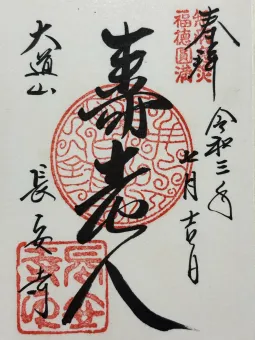 奉拝
福徳圓満
令和三年
七月吉日
寿老人
大道山
長安寺